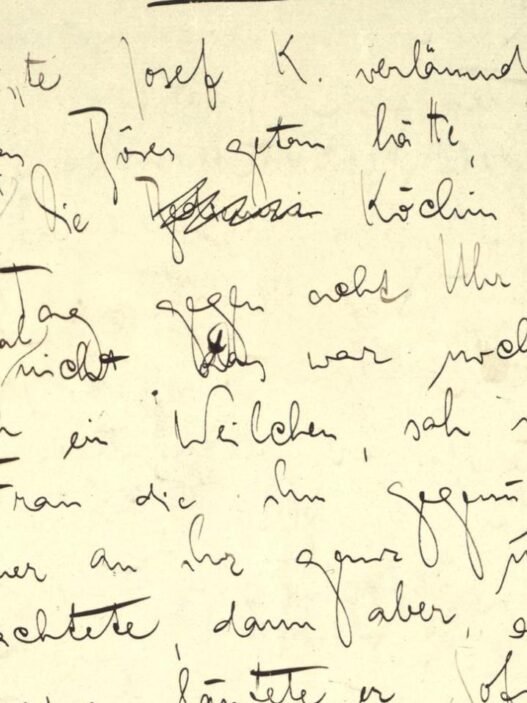 te Josef K. verläumd
Böses getan hätte,
Die Köchin
Tag gegen acht Uhr
nicht das war noch
ein Weilchen, sah
Frau die ihm gegenü
er an ihr ganz
achtete, dann aber,
läutete er